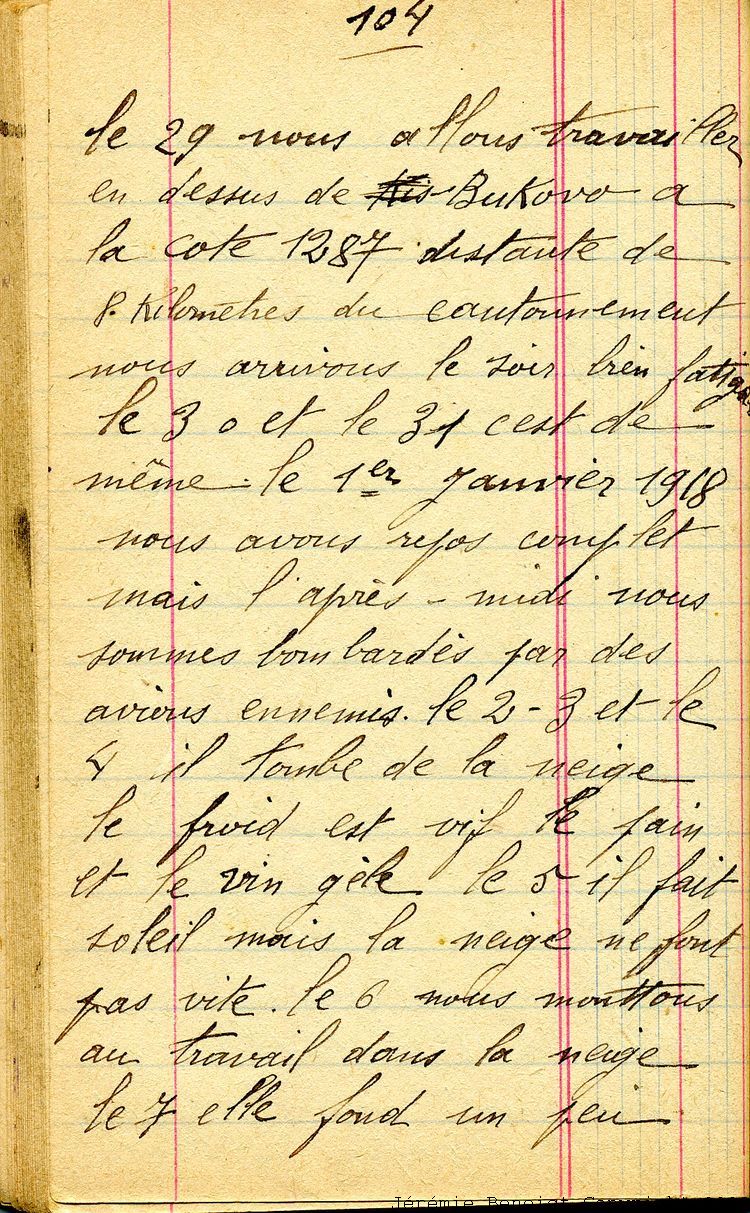 104
le 29 nous allons travailler
en dessus de Bukovo a
la cote 1287 distante de
8. Kilometres du cantonnement
nous arrivons le soir bien
le 30 et le 31 cest de
même. le 1er Janvier 1918
nous avons repos complet
mais l'après-midi nous
sommes bombardés par des
avions ennemis. le 2-3 et le
4 il tombe de la neige
le froid est vif le pain
et le vin gèle le 5 il fait
soleil mais la neige ne font
pas vite. le 6 nous monttons
au travail dans la neige
le 7 elle fond un peu
Jérémie Benoist